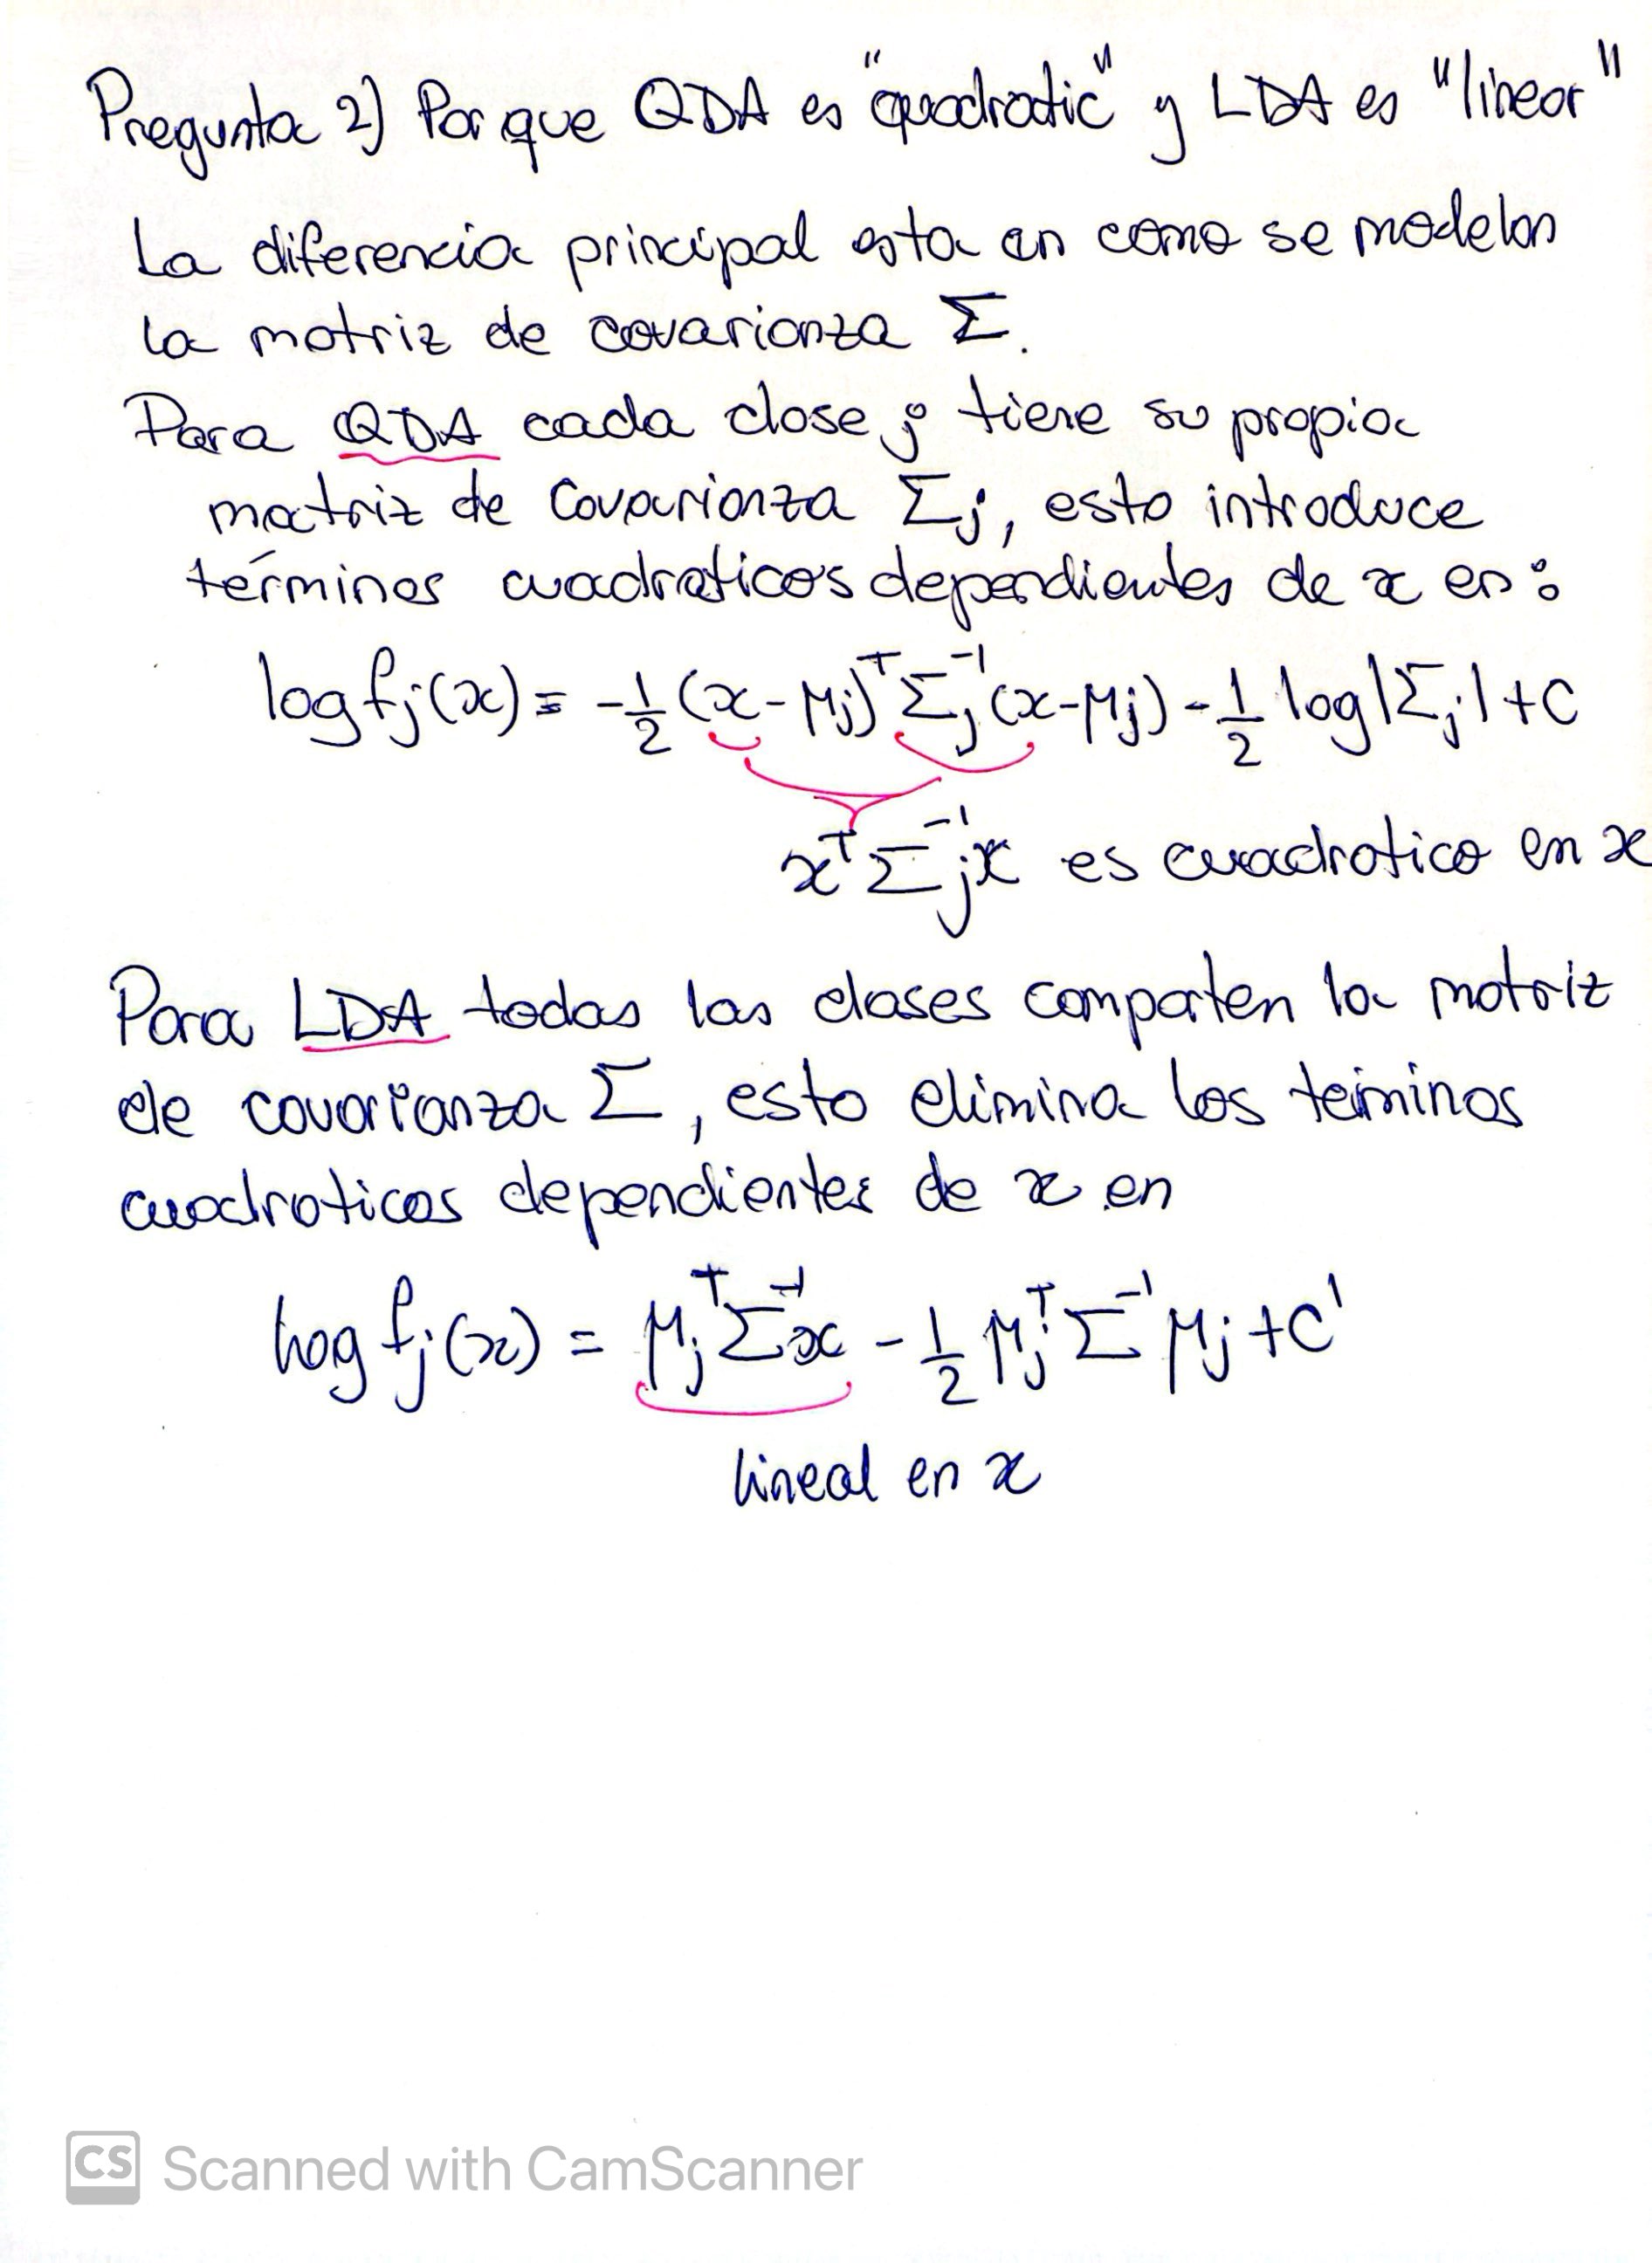 Pregunta 2) Por que QDA es "quadratic" y LDA es "linear"
La diferencia principal esta en como se modelan
la matriz de covarianza Σ.
Para QDA cada clase j tiene su propia
matriz de Covarianza Σj, esto introduce
términos cuadraticos dependientes de x en:
log fj(x) = -1/2 (x-μj)ᵀ Σj⁻¹ (x-μj) - 1/2 log|Σj| + C
xᵀ Σj⁻¹ x es cuadratico en x
Para LDA todas las clases comparten la matriz
de covarianza Σ, esto elimina los terminos
cuadraticos dependientes de x en
log fj(x) = μjᵀ Σ⁻¹ x - 1/2 μjᵀ Σ⁻¹ μj + C'
lineal en x
CS Scanned with CamScanner